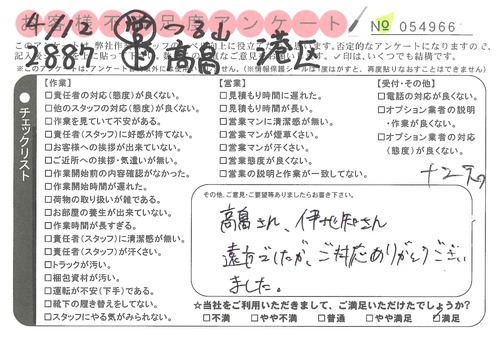 お客様不満足度アンケート
№ 054966
4/12
2887
高畠 港区
チェックリスト
【作業】
□責任者の対応(態度)が良くない。
□他のスタッフの対応(態度)が良くない。
□作業を見ていて不安がある。
□責任者(スタッフ)に好感が持てない。
□お客様への挨拶が出来ていない。
□ご近所への挨拶・気遣いが無い。
□作業開始前の内容確認がなかった。
□作業開始時間が遅れた。
□荷物の取り扱いが雑である。
□お部屋の養生が出来ていない。
□作業時間が長すぎる。
□責任者(スタッフ)に清潔感が無い。
□責任者(スタッフ)が汗くさい。
□トラックが汚い。
□梱包資材が汚い。
□運転が不安(下手)である。
□靴下の履き替えをしてない。
□スタッフにやる気がみられない。
【営業】
□見積もり時間に遅れた。
□見積もり時間が長い。
□営業マンに清潔感が無い。
□営業マンが煙草くさい。
□営業マンが汗くさい。
□営業態度が良くない。
□営業の説明と作業が一致してない。
【受付・その他】
□電話の対応が良くない。
□オプション業者の説明・作業が良くない。
□オプション業者の対応(態度)が良くない。
その他、ご意見・ご要望等ありましたらお書き下さい。
高畠さん、伊地知さん
遠方でしたが、ご対応ありがとうござい
ました。
☆当社をご利用いただきまして、ご満足いただけたでしょうか?
□不満 □やや不満 □普通 □やや満足 ☑満足